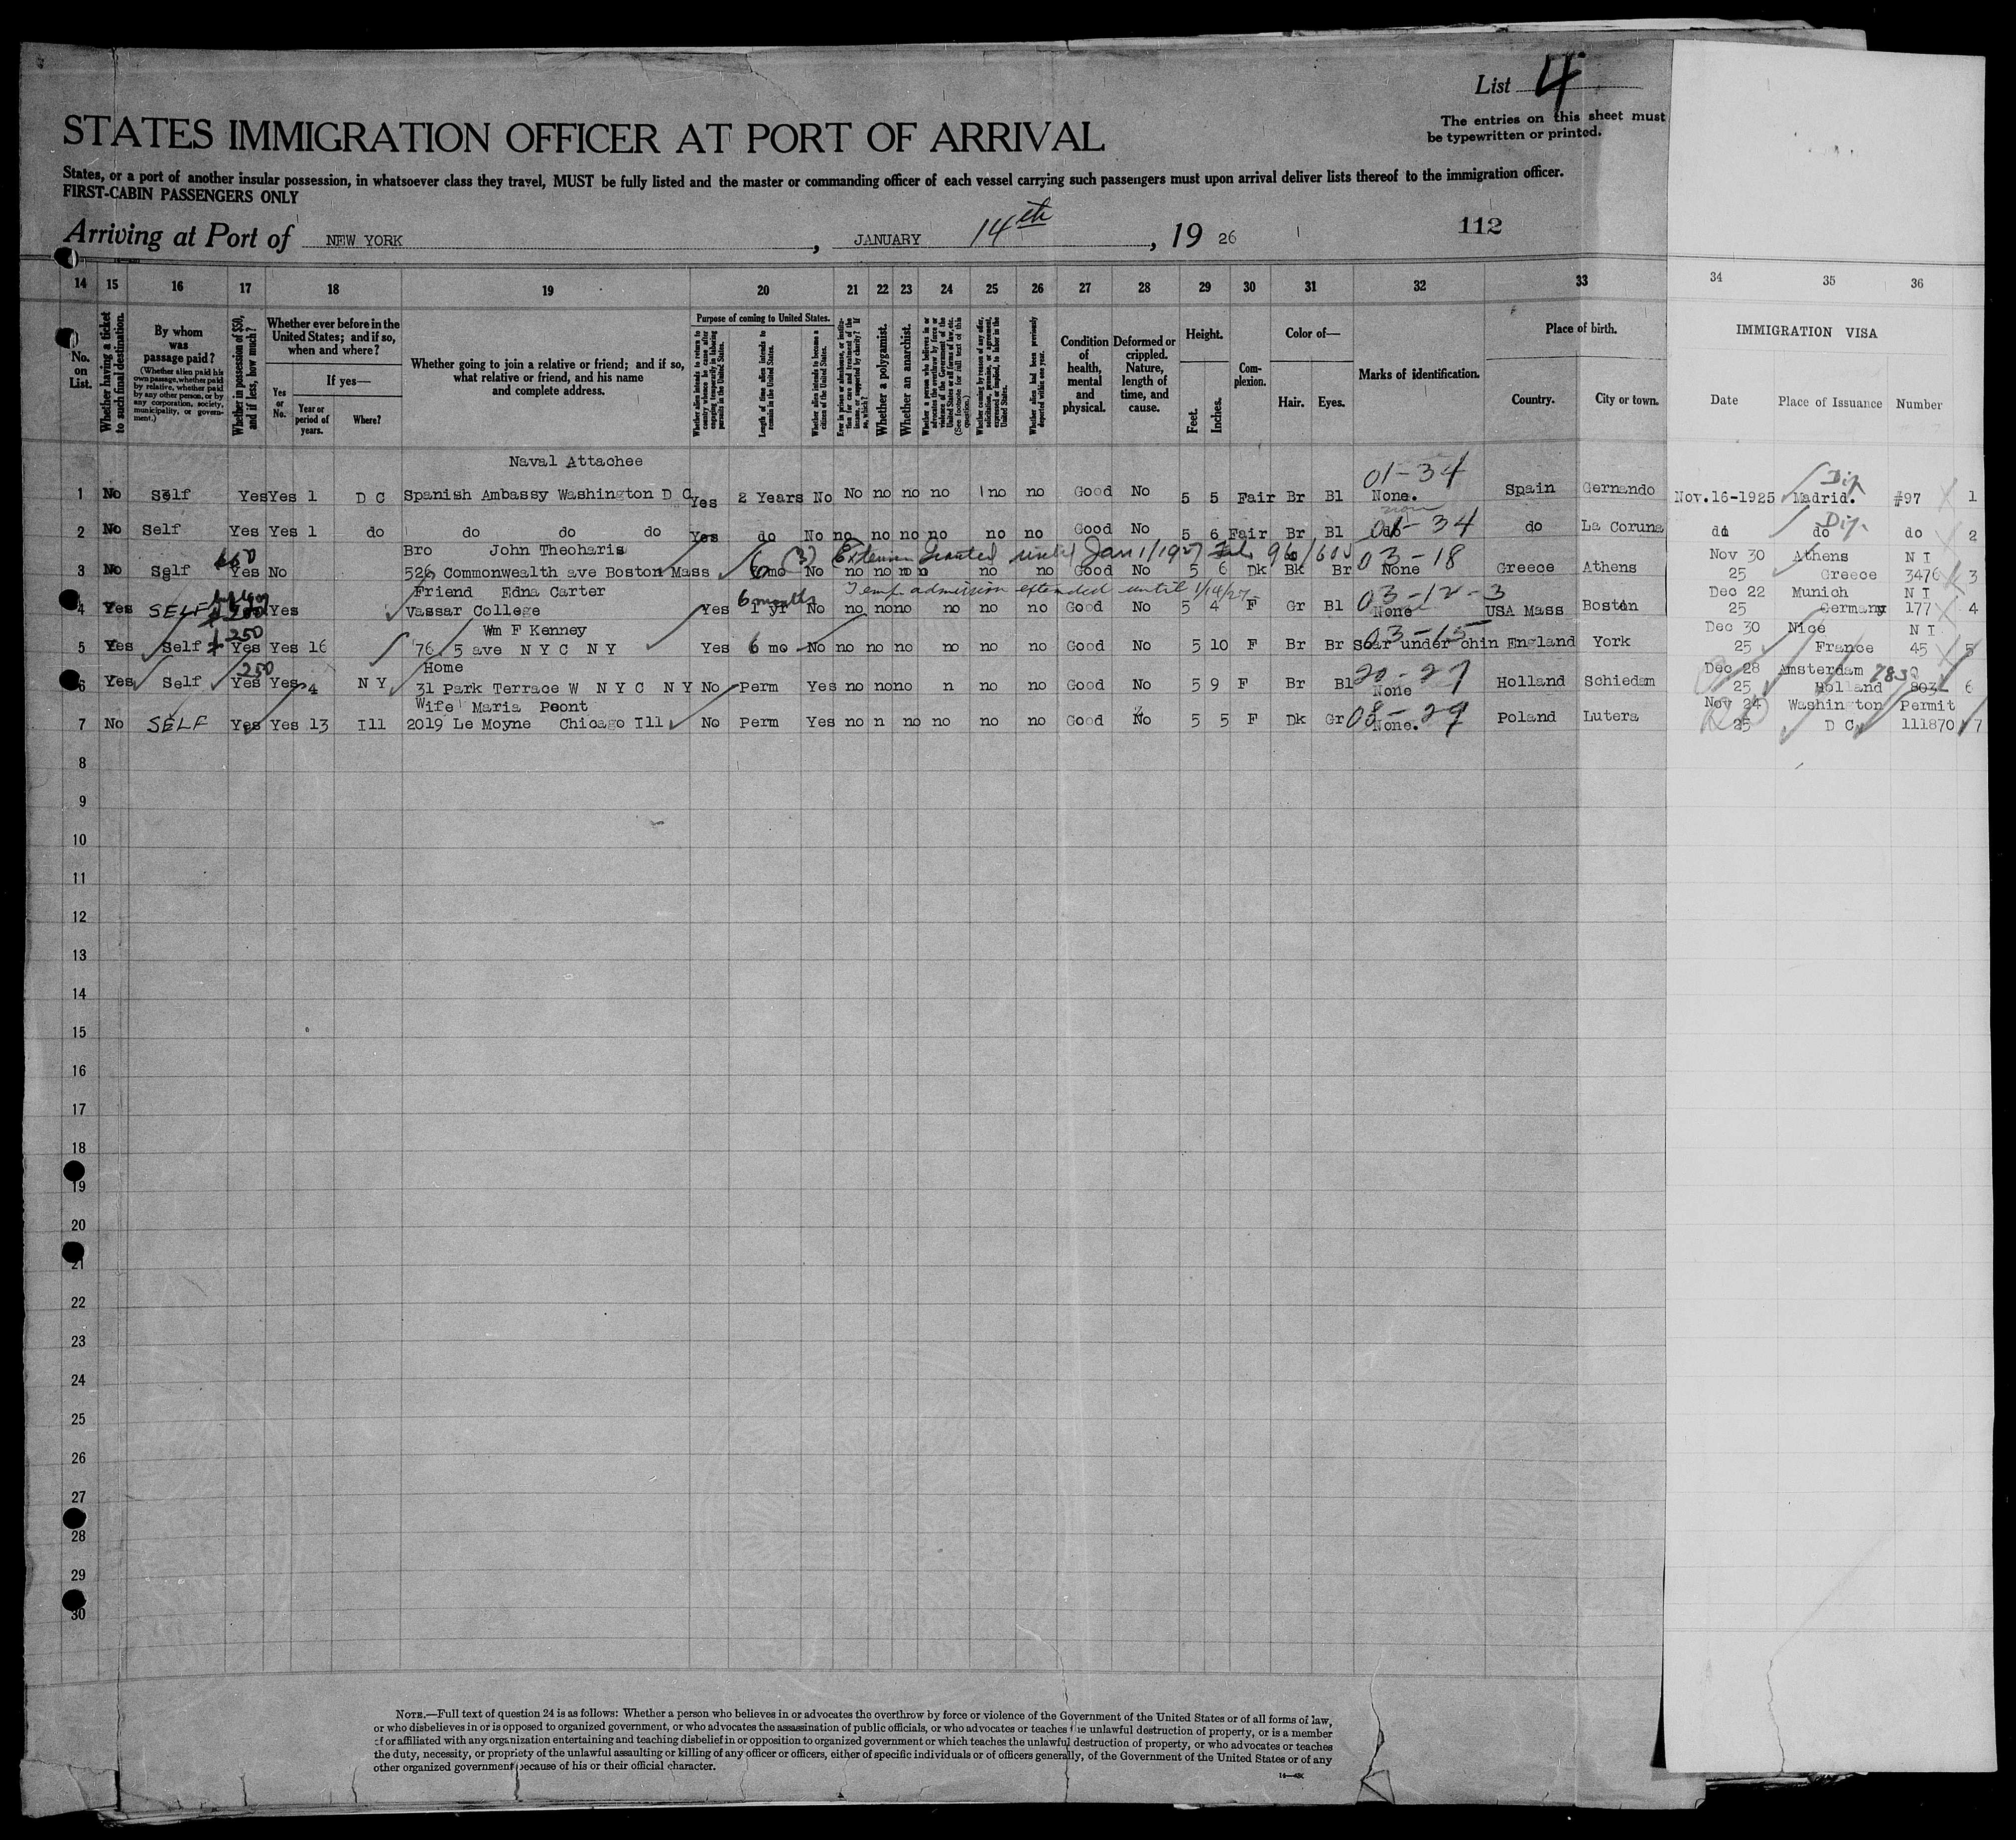 List 4
The entries on this sheet must
be typewritten or printed.
STATES IMMIGRATION OFFICER AT PORT OF ARRIVAL
States, or a port of another insular possession, in whatsoever class they travel, MUST be fully listed and the master or commanding officer of each vessel carrying such passengers must upon arrival deliver lists thereof to the immigration officer.
FIRST-CABIN PASSENGERS ONLY
Arriving at Port of NEW YORK, JANUARY 14th, 19 26 112
14 15 16 17 18 19 20 21 22 23 24 25 26 27 28 29 30 31 32 33 34 35 36
No. on List.
Whether having a ticket to such final destination.
By whom was passage paid?
(Whether alien paid his own passage, whether paid by relative, whether paid by any other person, or by any corporation, society, municipality, or government.)
Whether in possession of $50, and if less, how much?
Whether ever before in the United States; and if so, when and where?
Yes or No.
If yes—
Year or period of years.
Where?
Whether going to join a relative or friend; and if so, what relative or friend, and his name and complete address.
Purpose of coming to United States.
Length of time alien intends to remain in the United States.
Whether alien intends to become a citizen of the United States.
Whether a polygamist.
Whether an anarchist.
Whether alien had been previously deported within one year.
Condition of health, mental and physical.
Deformed or crippled. Nature, length of time, and cause.
Height.
Feet.
Inches.
Complexion.
Color of—
Hair.
Eyes.
Marks of identification.
Place of birth.
Country.
City or town.
IMMIGRATION VISA
Date
Place of Issuance
Number
Naval Attachee 01-34 Dip
1 No Self Yes Yes 1 D C Spanish Ambassy Washington D C Yes 2 Years No No no no no no no Good No 5 5 Fair Br Bl None. Spain Gernando Nov.16-1925 Madrid. #97 1
2 No Self Yes Yes 1 do do do do Yes do No no no no no no no Good No 5 6 Fair Br Bl do 01-34 do La Coruna do do Dip. do 2
Bro John Theoharis (3) Extension Granted until Jan 1/1927 03-18 Nov 30 Athens N I
3 No Self Yes No 526 Commonwealth ave Boston Mass 6 mo No no no no n no no Good No 5 6 Dk Bk Br None Greece Athens 25 Greece 3476 3
Friend Edna Carter 6 months Temp admission extended until 1/14/27 03-12-3 Dec 22 Munich N I
4 Yes SELF Yes Vassar College Yes 1 yr No no no no no no no Good No 5 4 F Gr Bl None USA Mass Boston 25 Germany 177 4
250 Wm F Kenney 03-15 Dec 30 Nice N I
5 Yes Self Yes Yes 16 76 5 ave N Y C N Y Yes 6 mo No no no no no no no Good No 5 10 F Br Br Scar under chin England York 25 France 45 5
250 Home 20-27 Dec 28 Amsterdam 7830
6 Yes Self Yes Yes 4 N Y 31 Park Terrace W N Y C N Y No Perm Yes no no no n no no Good No 5 9 F Br Bl None Holland Schiedam 25 Holland 803 6
Wife Maria Peont 08-29 Nov 24 Washington Permit
7 No SELF Yes Yes 13 Ill 2019 Le Moyne Chicago Ill No Perm Yes no n no no no no Good No 5 5 F Dk Gr None. Poland Lutera 25 D C 111870 7
8
9
10
11
12
13
14
15
16
17
18
19
20
21
22
23
24
25
26
27
28
29
30
NOTE.—Full text of question 24 is as follows: Whether a person who believes in or advocates the overthrow by force or violence of the Government of the United States or of all forms of law,
or who disbelieves in or is opposed to organized government, or who advocates the assassination of public officials, or who advocates or teaches the unlawful destruction of property, or is a member
of or affiliated with any organization entertaining and teaching disbelief in or opposition to organized government or which teaches the unlawful destruction of property, or who advocates or teaches
the duty, necessity, or propriety of the unlawful assaulting or killing of any officer or officers, either of specific individuals or of officers generally, of the Government of the United States or of any
other organized government because of his or their official character.